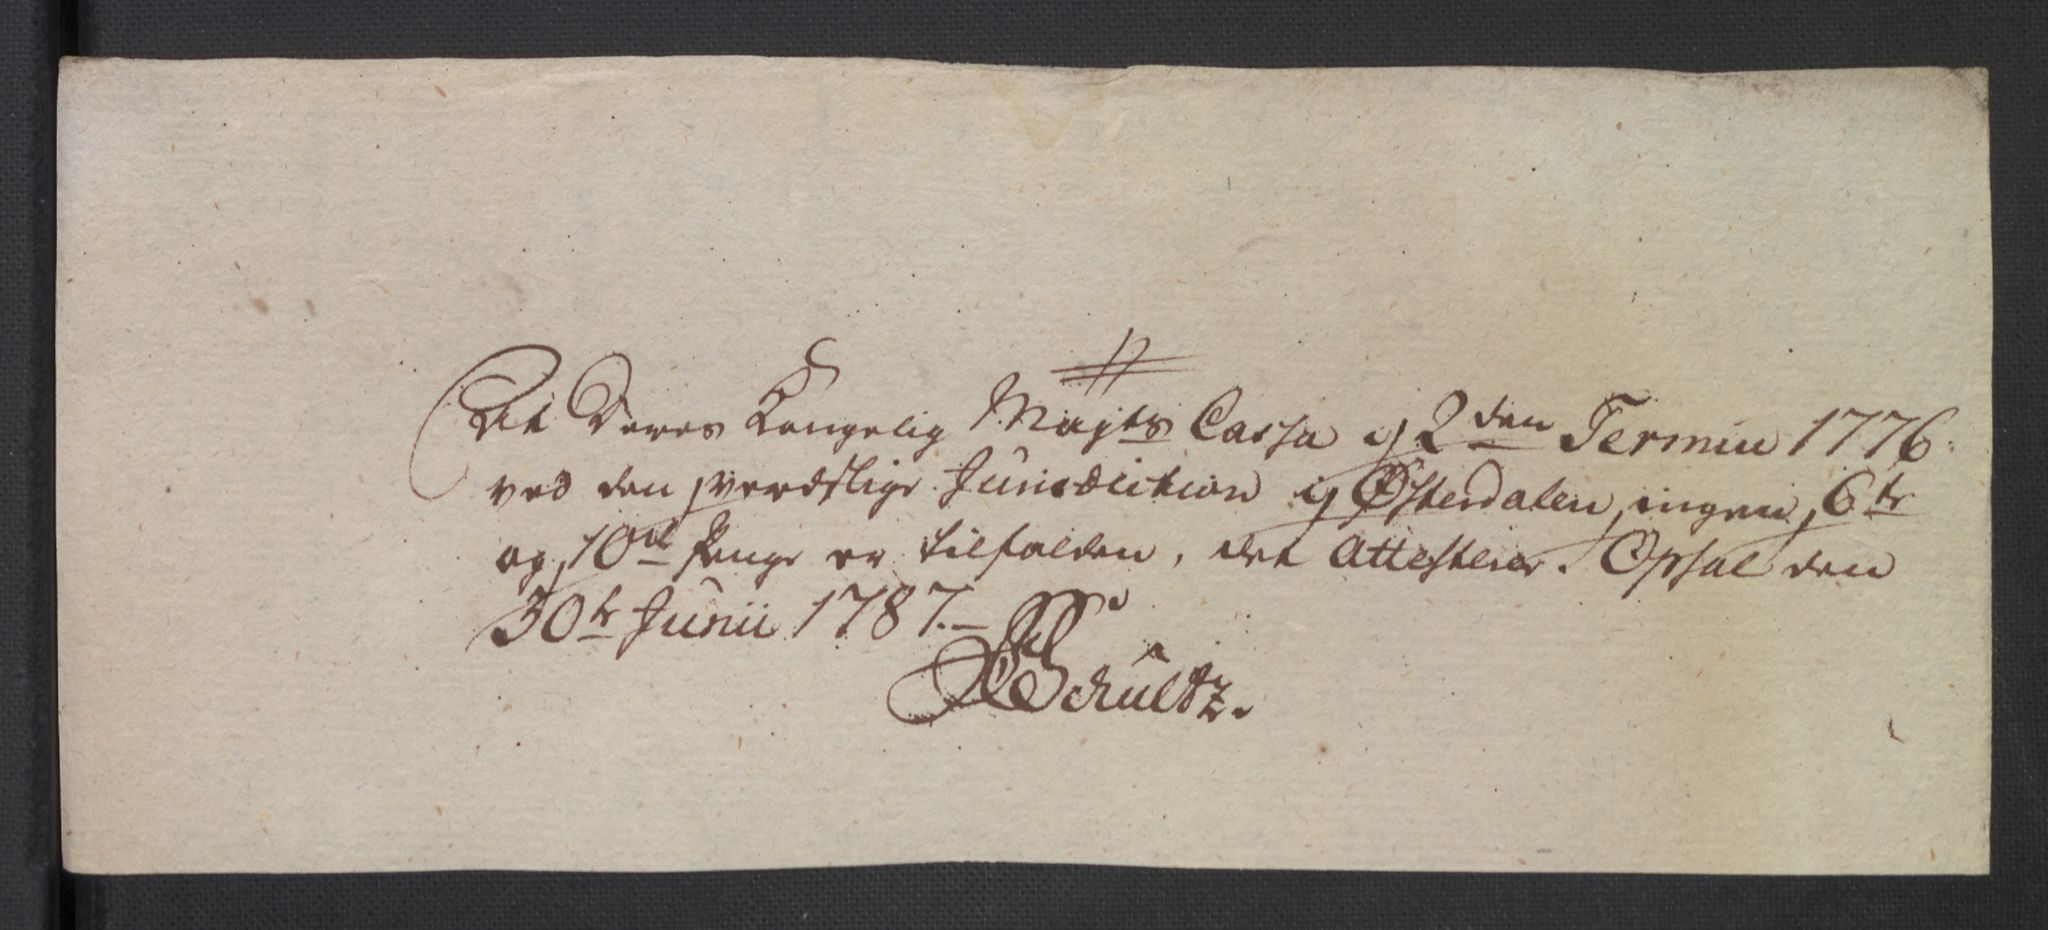 At Deres Kongelig Mayts Cassa i 2den Termin 1776
ved den verdslige Jurisdiction i Østerdalen, ingen 6te
og 10de Penge er tilfalden, det Attesterer. Opsal den
30te Junii 1787.
Schultz.